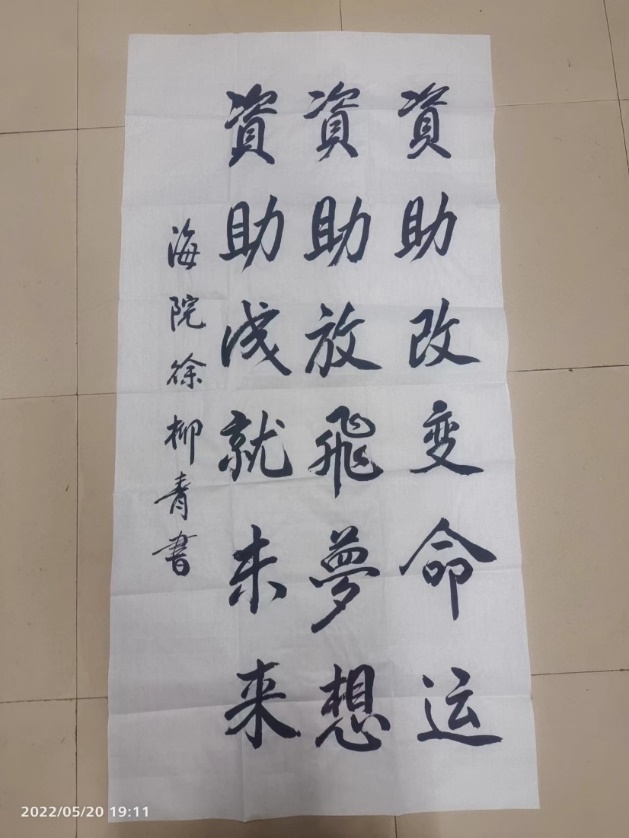 資助改变命运
資助放飛夢想
資助成就未来
海院徐柳青書
2022/05/20 19:11